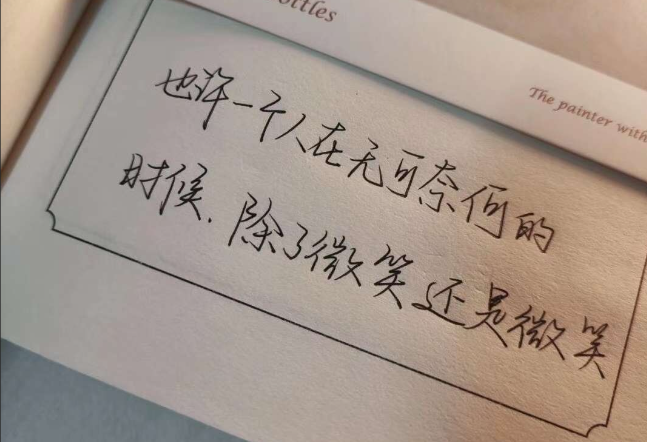 ottles
The painter with
也许一个人在无可奈何的
时候.除了微笑还是微笑